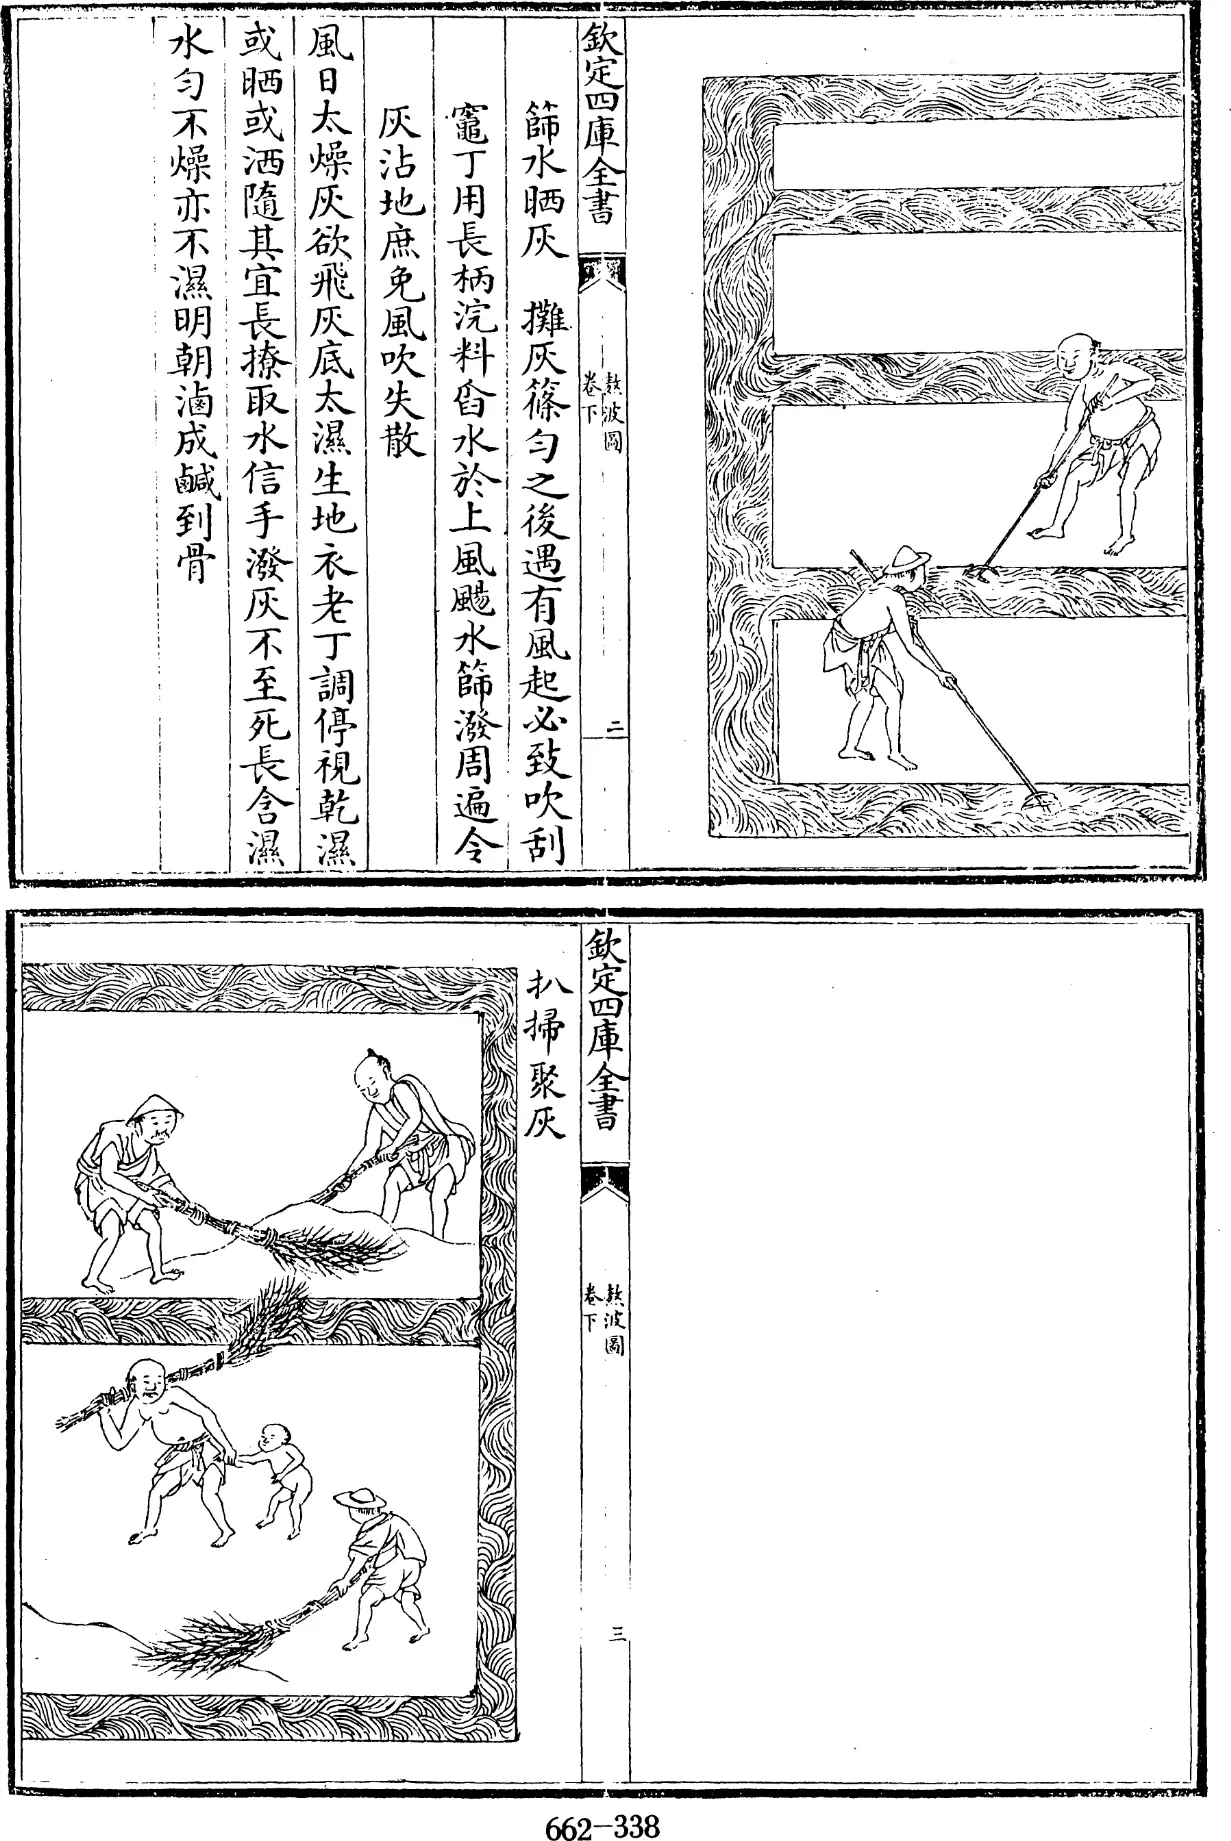 欽定四庫全書
熬波圖
卷下
二
篩水晒灰　攤灰篠勻之後遇有風起必致吹刮
竈丁用長柄浣料舀水於上風颺水篩潑周遍令
灰沾地庶免風吹失散
風日太燥灰欲飛灰底太濕生地衣老丁調停視乾濕
或晒或洒隨其宜長撩取水信手潑灰不至死長含濕
水勻不燥亦不濕明朝滷成鹹到骨
欽定四庫全書
熬波圖
卷下
三
扒掃聚灰
662-338